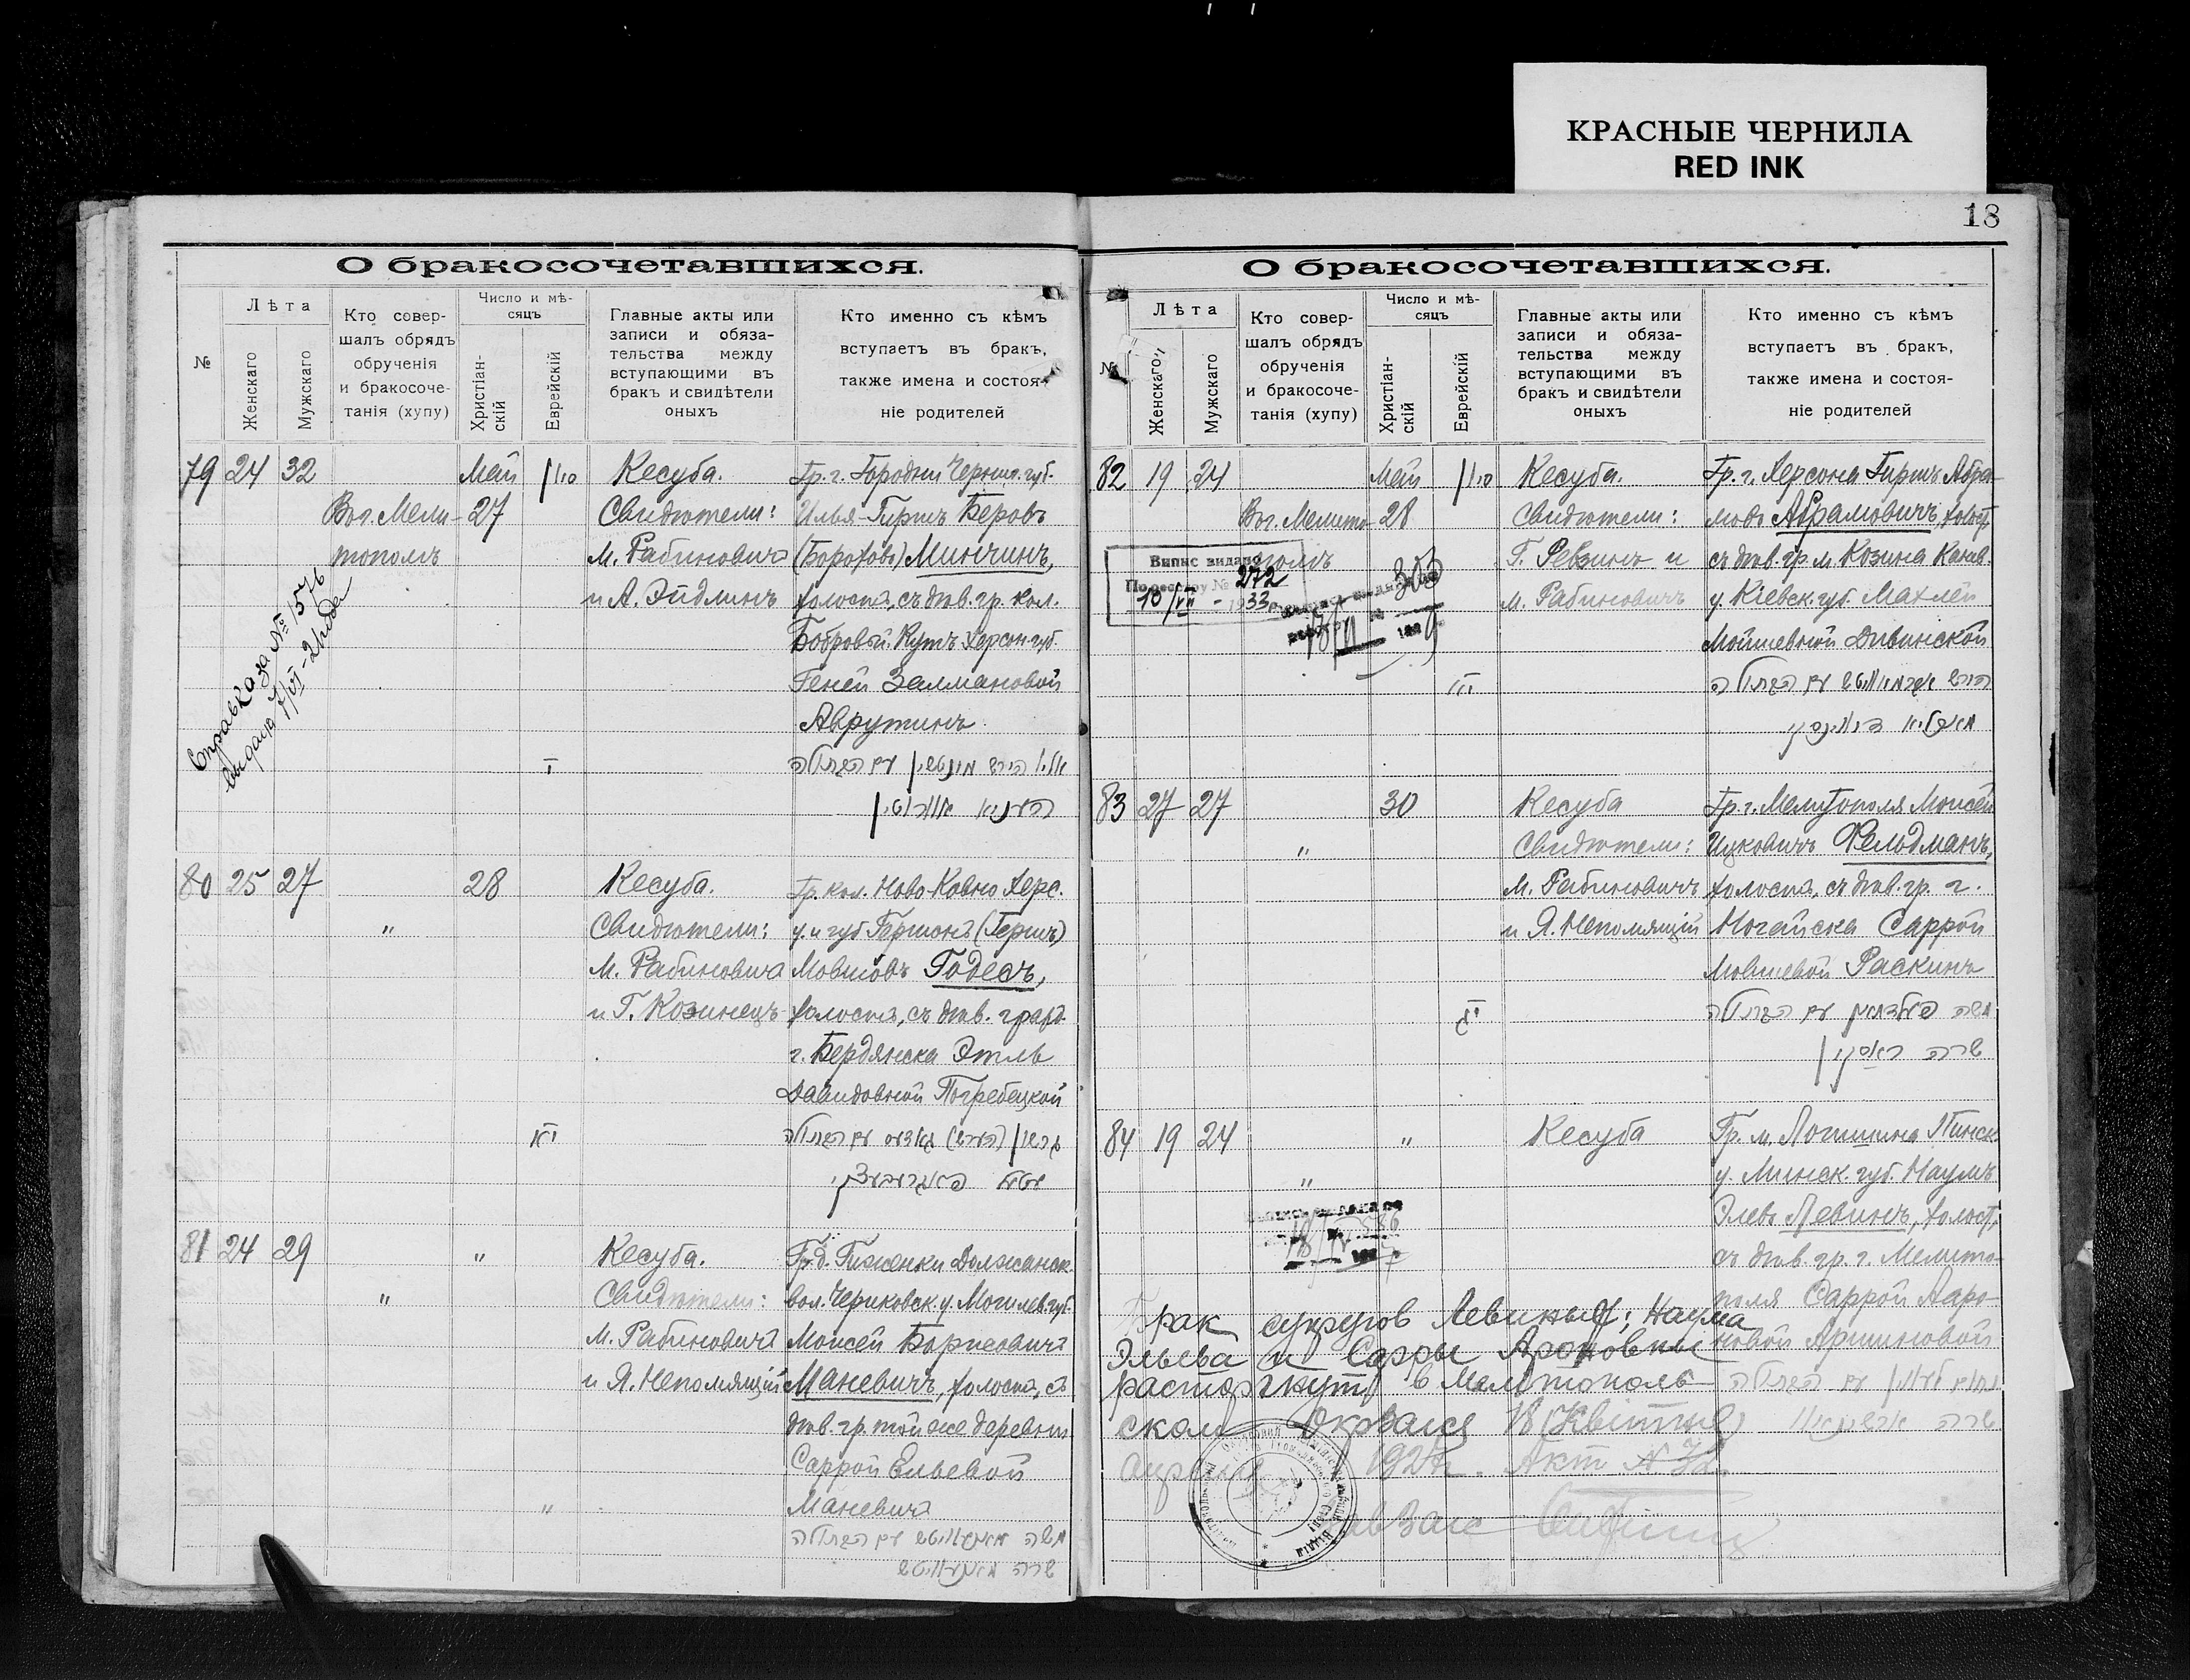 КРАСНЫЕ ЧЕРНИЛА
RED INK
О бракосочетавшихся.
№
Лѣта
Женскаго
Мужскаго
Кто совер-
шалъ обрядъ
обрученія
и бракосоче-
танія (хупу)
Число и мѣ-
сяцъ
Христіан-
скій
Еврейскій
Главные акты или
записи и обяза-
тельства между
вступающими въ
бракъ и свидѣтели
оныхъ
Кто именно съ кѣмъ
вступаетъ въ бракъ,
также имена и состоя-
ніе родителей
79 24 32
Въ г. Мели-
тополѣ
Май
27
סיון
Кесуба.
Свидѣтели:
М. Рабиновичъ
и А. Эйдлинъ
Гр. г. Городни Черниг. губ.
Илья-Гиршъ Беровъ
(Бороховъ) Минчинъ,
холостъ, съ дѣв. гр. кол.
Бобровый-Кутъ Херсон. губ.
Геней Залмановой
Аврутинъ
Справка за № 1576
выдана 7/VI-21 года
80 25 27
"
28
Кесуба.
Свидѣтели:
М. Рабиновичъ
и Г. Козинецъ
Гр. кол. Ново-Ковно Херс.
у. и губ. Гершонъ (Гершъ)
Мовшовъ Годесъ,
холостъ, съ дѣв. гражд.
г. Бердянска Этль
Давидовной Погребецкой
81 24 29
"
"
Кесуба.
Свидѣтели:
М. Рабиновичъ
и Я. Непомлящій
Гр. д. Гиженки Должанск.
вол. Чериковск. у. Могилев. губ.
Моисей Борисовичъ
Маневичъ, холостъ, съ
дѣв. гр. той же деревни
Саррой Ельевой
Маневичъ
"
משה מאנעוויטש עם הבתולה
שרה מאנעוויטש
18
О бракосочетавшихся.
№
Лѣта
Женскаго
Мужскаго
Кто совер-
шалъ обрядъ
обрученія
и бракосоче-
танія (хупу)
Число и мѣ-
сяцъ
Христіан-
скій
Еврейскій
Главные акты или
записи и обяза-
тельства между
вступающими въ
бракъ и свидѣтели
оныхъ
Кто именно съ кѣмъ
вступаетъ въ бракъ,
также имена и состоя-
ніе родителей
82 19 24
Въ г. Мелито-
полѣ
Май
28
סיון
Кесуба.
Свидѣтели:
Г. Ревзинъ и
М. Рабиновичъ
Гр. г. Херсона Гиршъ Абра-
мовъ Абрамовичъ, холост,
съ дѣв. гр. м. Козина Канев.
у. Кіевск. губ. Махлей
Мошиевной Дивинской
Випис видано
По реєстру № 272
10/VII - 1933
303
83 27 27
"
30
Кесуба
Свидѣтели:
М. Рабиновичъ
и Я. Непомлящій
Гр. г. Мелитополя Моисей
Ицковичъ Фельдманъ,
холостъ, съ дѣв. гр. г.
Ногайска Саррой
Мовшевой Раскинъ
משה פעלדמאן עם הבתולה
שרה ראסקין
84 19 24
"
"
Кесуба
Гр. м. Логишина Пинск
у. Минск. губ. Наумъ
Элевъ Левинъ, холост,
съ дѣв. гр. г. Мелито-
поля Саррой Ааро-
новой Аршиновой
נחום לעווין עם הבתולה
Брак супругов Левиных: Наума
Эльева и Сарры Ароновны
расторгнут в Мелитополь-
ском Окрзагсе 18 (Квітня)
апреля 192 г. Акт №